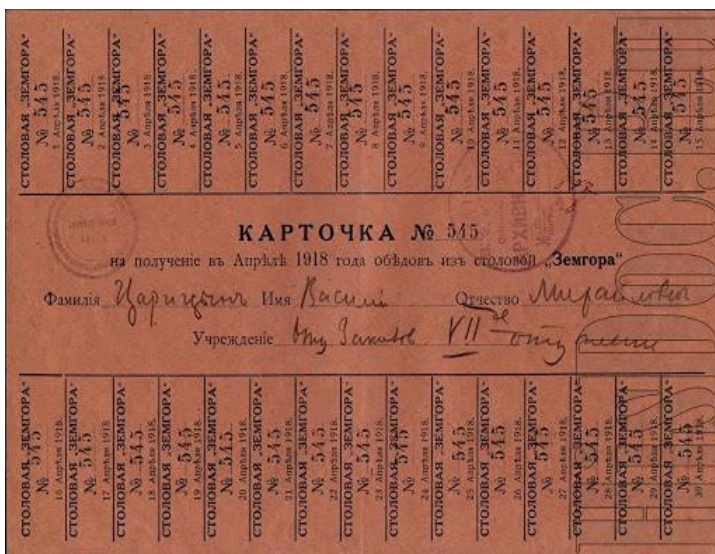 СТОЛОВАЯ „ЗЕМГОРА“ № 545 1 Апрѣля 1918.
СТОЛОВАЯ „ЗЕМГОРА“ № 545 2 Апрѣля 1918.
СТОЛОВАЯ „ЗЕМГОРА“ № 545 3 Апрѣля 1918.
СТОЛОВАЯ „ЗЕМГОРА“ № 545 4 Апрѣля 1918.
СТОЛОВАЯ „ЗЕМГОРА“ № 545 5 Апрѣля 1918.
СТОЛОВАЯ „ЗЕМГОРА“ № 545 6 Апрѣля 1918.
СТОЛОВАЯ „ЗЕМГОРА“ № 545 7 Апрѣля 1918.
СТОЛОВАЯ „ЗЕМГОРА“ № 545 8 Апрѣля 1918.
СТОЛОВАЯ „ЗЕМГОРА“ № 545 9 Апрѣля 1918.
СТОЛОВАЯ „ЗЕМГОРА“ № 545 10 Апрѣля 1918.
СТОЛОВАЯ „ЗЕМГОРА“ № 545 11 Апрѣля 1918.
СТОЛОВАЯ „ЗЕМГОРА“ № 545 12 Апрѣля 1918.
СТОЛОВАЯ „ЗЕМГОРА“ № 545 13 Апрѣля 1918.
СТОЛОВАЯ „ЗЕМГОРА“ № 545 14 Апрѣля 1918.
СТОЛОВАЯ „ЗЕМГОРА“ № 545 15 Апрѣля 1918.
КАРТОЧКА № 545
на полученіе въ Апрѣлѣ 1918 года обѣдовъ изъ столовой „Земгора“
Фамилія Царицынъ Имя Василій Отчество Михайловичъ
Учрежденіе Отд. Заказовъ VII ое отдѣленіе
СТОЛОВАЯ „ЗЕМГОРА“ № 545 16 Апрѣля 1918.
СТОЛОВАЯ „ЗЕМГОРА“ № 545 17 Апрѣля 1918.
СТОЛОВАЯ „ЗЕМГОРА“ № 545 18 Апрѣля 1918.
СТОЛОВАЯ „ЗЕМГОРА“ № 545 19 Апрѣля 1918.
СТОЛОВАЯ „ЗЕМГОРА“ № 545 20 Апрѣля 1918.
СТОЛОВАЯ „ЗЕМГОРА“ № 545 21 Апрѣля 1918.
СТОЛОВАЯ „ЗЕМГОРА“ № 545 22 Апрѣля 1918.
СТОЛОВАЯ „ЗЕМГОРА“ № 545 23 Апрѣля 1918.
СТОЛОВАЯ „ЗЕМГОРА“ № 545 24 Апрѣля 1918.
СТОЛОВАЯ „ЗЕМГОРА“ № 545 25 Апрѣля 1918.
СТОЛОВАЯ „ЗЕМГОРА“ № 545 26 Апрѣля 1918.
СТОЛОВАЯ „ЗЕМГОРА“ № 545 27 Апрѣля 1918.
СТОЛОВАЯ „ЗЕМГОРА“ № 545 28 Апрѣля 1918.
СТОЛОВАЯ „ЗЕМГОРА“ № 545 29 Апрѣля 1918.
СТОЛОВАЯ „ЗЕМГОРА“ № 545 30 Апрѣля 1918.